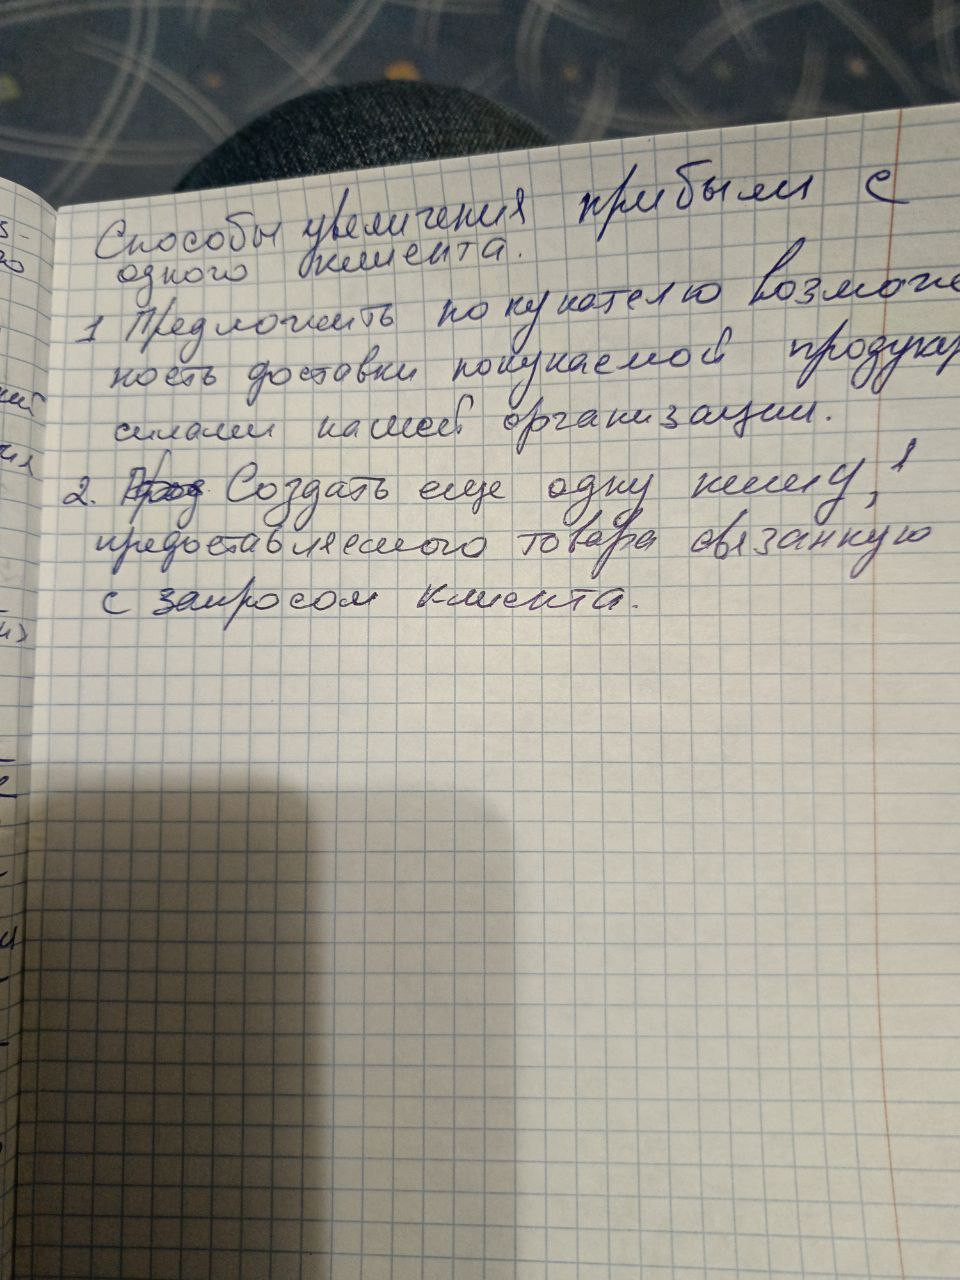 Способы увеличения прибыли с
одного клиента.
1 Предложить покупателю возможн
ность доставки покупаемой продукц
силами нашей организации.
2. Создать еще одну
предоставляемого товара связанную
с запросом клиента.